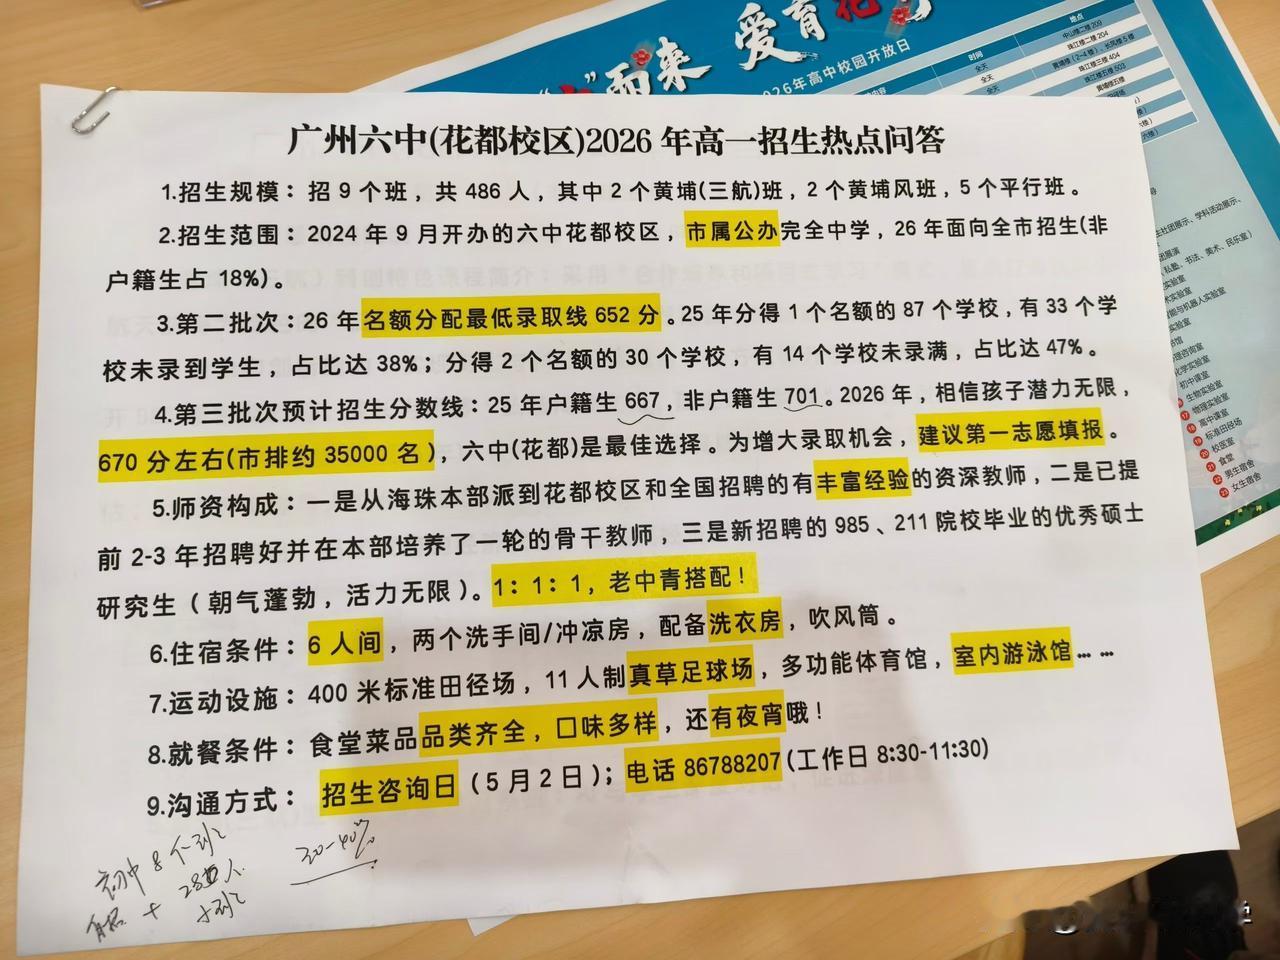 而来 爱育花
2026年高中校园开放日
时间
地点
全天
中山楼二楼 209
全天
珠江楼二楼 204
全天
黄埔楼（2-4楼）、长风楼5楼
珠江楼三楼 404
珠江楼五楼 503
黄埔楼五楼
广州六中(花都校区)2026 年高一招生热点问答
1.招生规模：招 9 个班，共 486 人，其中 2 个黄埔(三航)班，2 个黄埔风班，5 个平行班。
2.招生范围：2024 年 9 月开办的六中花都校区，市属公办完全中学，26 年面向全市招生(非
户籍生占 18%)。
3.第二批次：26 年名额分配最低录取线 652 分。25 年分得 1 个名额的 87 个学校，有 33 个学
校未录到学生，占比达 38%；分得 2 个名额的 30 个学校，有 14 个学校未录满，占比达 47%。
4.第三批次预计招生分数线：25 年户籍生 667，非户籍生 701。2026 年，相信孩子潜力无限，
670 分左右(市排约 35000 名)，六中(花都)是最佳选择。为增大录取机会，建议第一志愿填报。
5.师资构成：一是从海珠本部派到花都校区和全国招聘的有丰富经验的资深教师，二是已提
前 2-3 年招聘好并在本部培养了一轮的骨干教师，三是新招聘的 985、211 院校毕业的优秀硕士
研究生（朝气蓬勃，活力无限）。1：1：1，老中青搭配！
6.住宿条件：6 人间，两个洗手间/冲凉房，配备洗衣房，吹风筒。
7.运动设施：400 米标准田径场，11 人制真草足球场，多功能体育馆，室内游泳馆……
8.就餐条件：食堂菜品品类齐全，口味多样，还有夜宵哦！
9.沟通方式：招生咨询日（5 月 2 日）；电话 86788207(工作日 8:30-11:30)
初中 8 个班
30-40%
生物实验室
物理实验室
高中课室
标准田径场
校医室
食堂
男生宿舍
女生宿舍